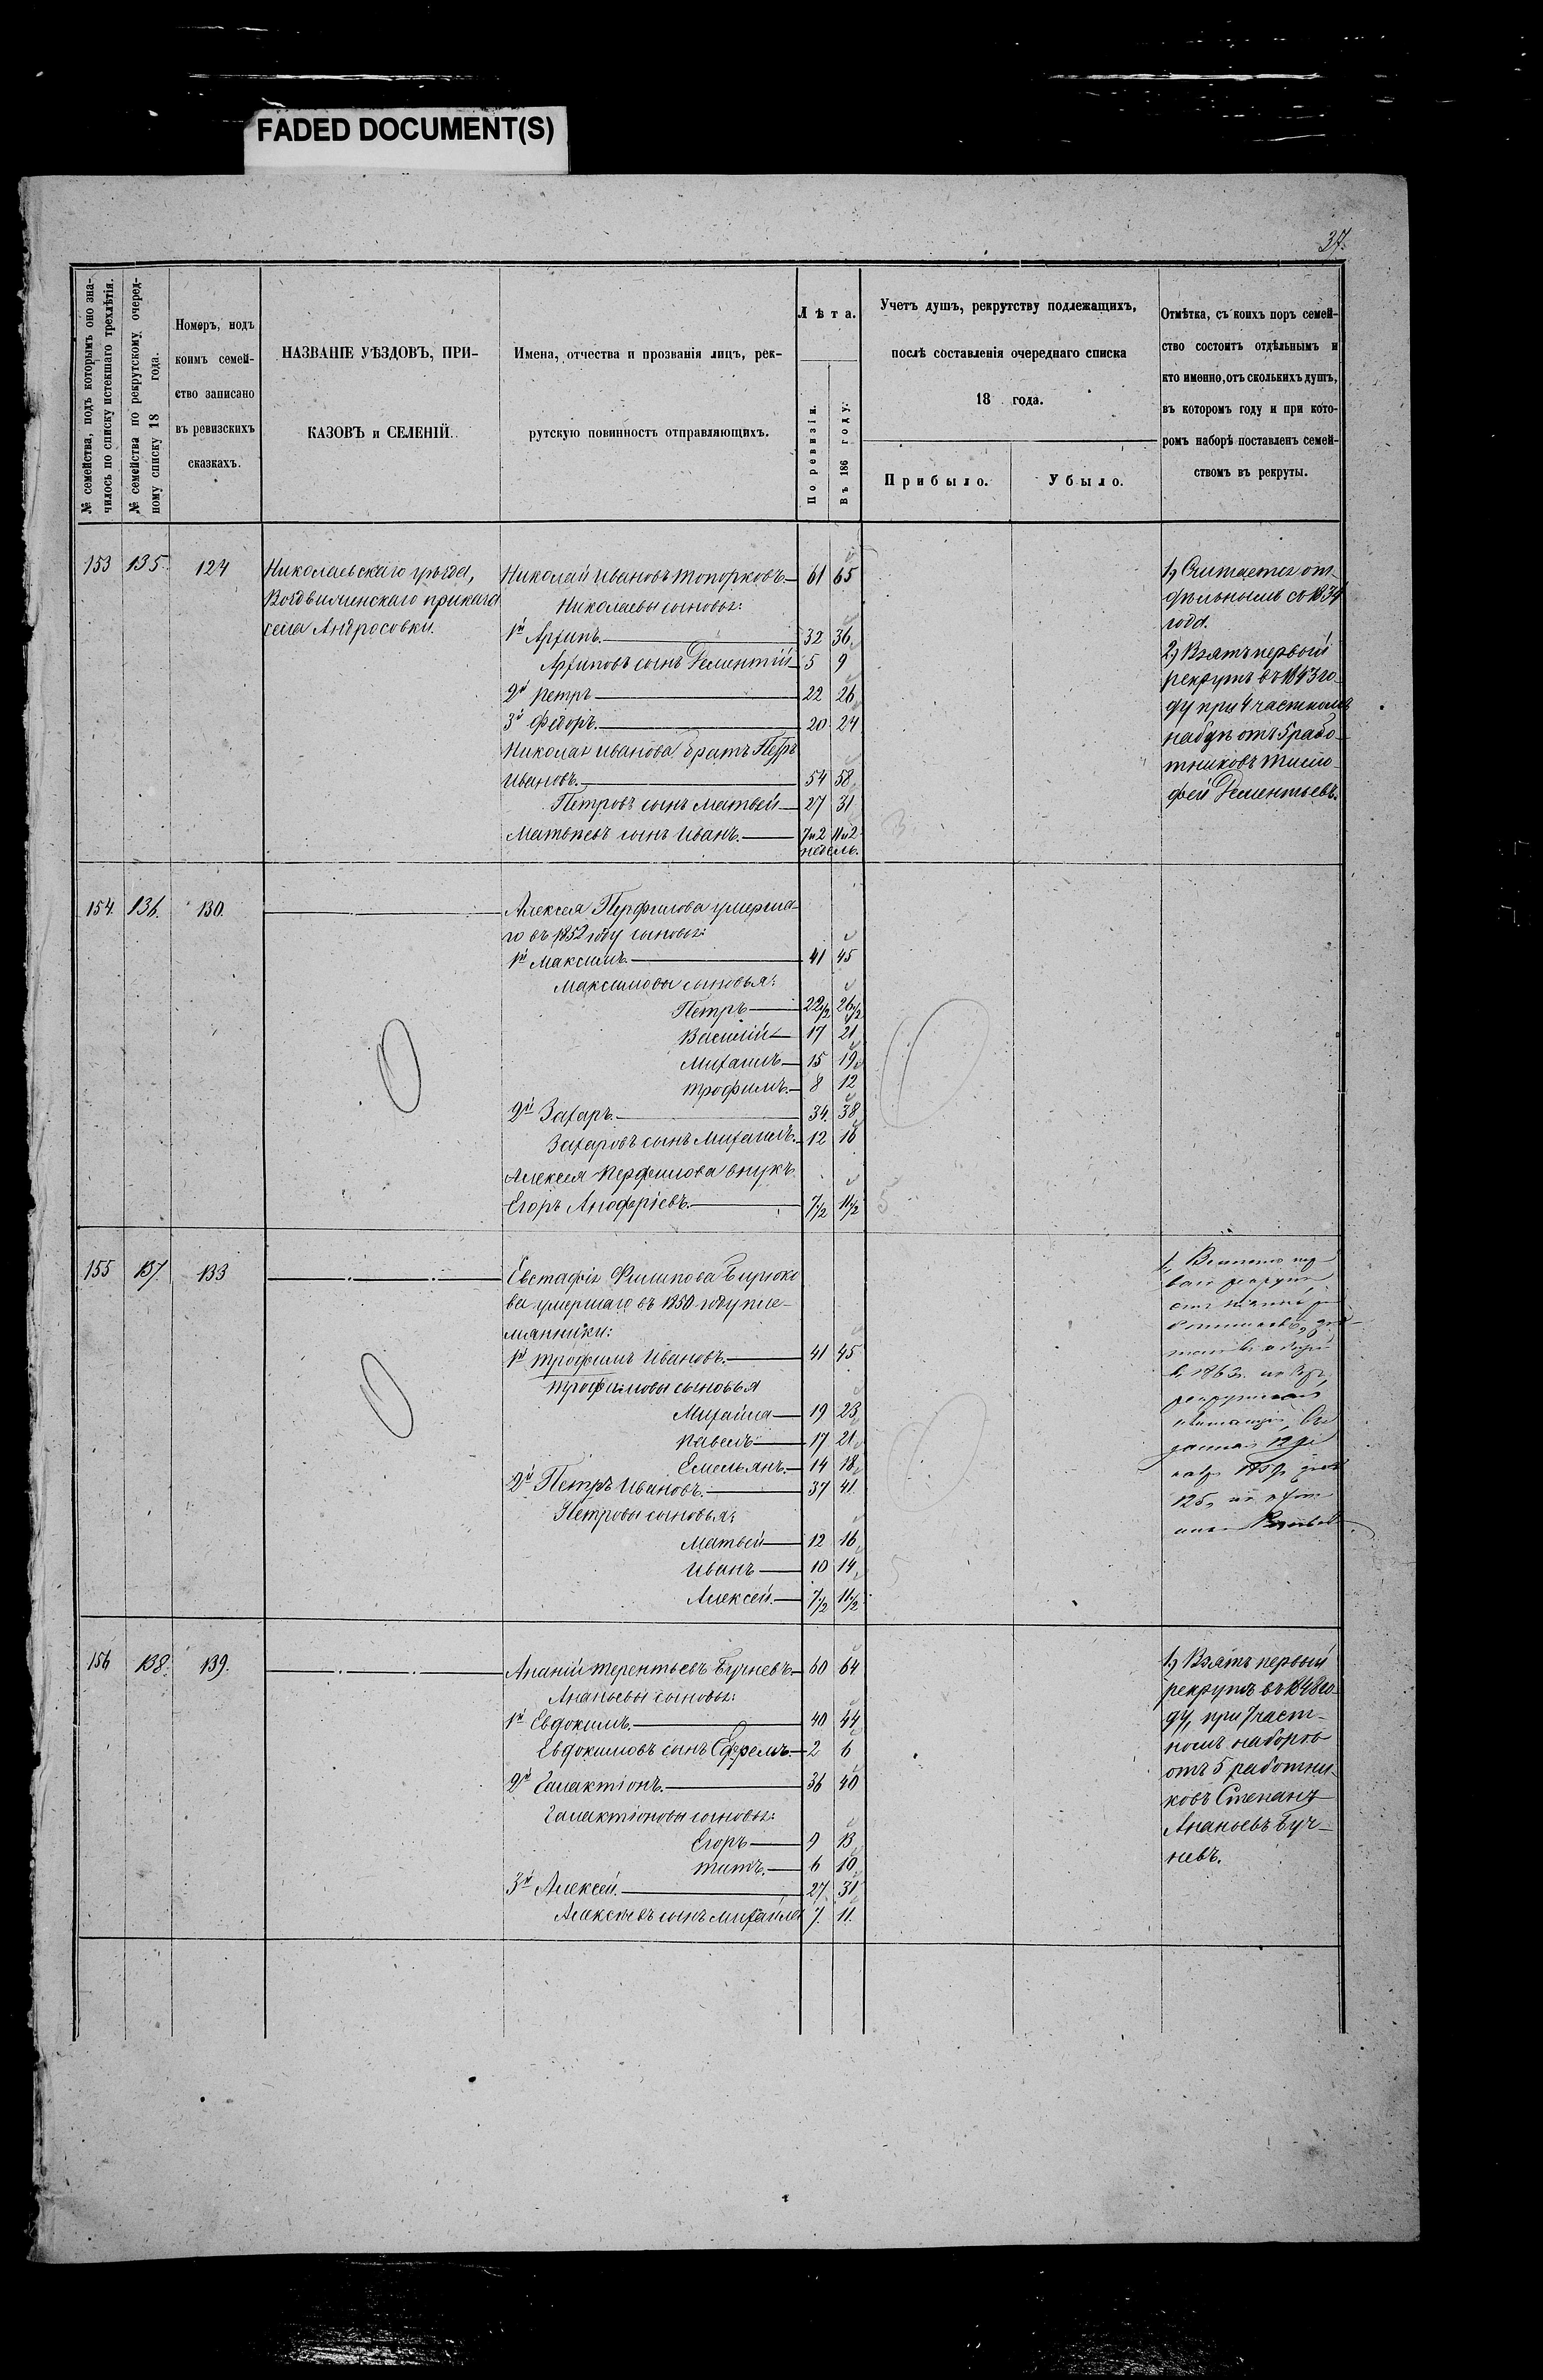 FADED DOCUMENT(S)
37.
№ семейства, подъ которымъ оно зна-
чилось по списку истекшаго трехлѣтія.
№ семейства по рекрутскому очеред-
ному списку 18 года.
Номеръ, подъ
коимъ семей-
ство записано
въ ревизскихъ
сказкахъ.
НАЗВАНІЕ УѢЗДОВЪ, ПРИ-
КАЗОВЪ и СЕЛЕНІЙ.
Имена, отчества и прозванія лицъ, рек-
рутскую повинность отправляющихъ.
Лѣта.
По ревизіи.
Въ 186 году.
Учетъ душъ, рекрутству подлежащихъ,
послѣ составленія очереднаго списка
18 года.
Прибыло.
Убыло.
Отмѣтка, съ коихъ поръ семей-
ство состоитъ отдѣльнымъ и
кто именно, отъ сколькихъ душъ,
въ котором году и при кото-
ромъ наборѣ поставленъ семей-
ствомъ въ рекруты.
153 135. 124
Николаевскаго уѣзда,
приказа
села Андросовки.
Николай Ивановъ Топорковъ. 61 65
Николаевы сыновья:
1й Архипъ. 32 36
Архиповъ сынъ Дементій 5 9
2й Петръ 22 26
3й Федоръ. 20 24
Николая Иванова братъ Петръ
Ивановъ. 54 58
Петровъ сынъ Матвей 27 31
Матвѣевъ сынъ Иванъ. 7 и 2 11 и 2
недель.
3.
1) Считается от-
дѣльнымъ съ 1834
года.
2) Взятъ первый
рекрутъ въ 1843 го-
ду при 4 частномъ
наборѣ отъ 5 рабо-
тниковъ Тимо-
фей Дементьевъ.
154. 136. 130.
Алексея Перфилова умерша-
го въ 1852 году сыновья:
1й Максимъ. 41 45
Максимовы сыновья:
Петръ 22 1/2 26 1/2
Василій 17 21
Михаилъ 15 19
Трофимъ. 8 12
2й Захаръ. 34. 38
Захаровъ сынъ Михаилъ. 12 16
Алексея Перфилова внукъ
Егоръ Анофріевъ. 7 1/2 11 1/2
5
155 137. 133
Евстафія Филипова Бирюко
ва умершаго въ 1850 году пле-
мянники:
1й Трофимъ Ивановъ. 41 45
Трофимовы сыновья
Михайла 19 23
Павелъ 17 21
Емельянъ. 14 18
2й Петръ Ивановъ. 37 41
Петровы сыновья:
Матвей 12 16
Иванъ 10 14
Алексей. 7 1/2 11 1/2
5
156 138. 139.
Ананій Терентьевъ Бучневъ. 60 64
Ананьевы сыновья:
1й Евдокимъ. 40 44
Евдокимовъ сынъ Ефремъ. 2 6
2й Галактіонъ. 36 40
Галактіоновы сыновья:
Егоръ 9 13
Титъ. 6 10
3й Алексей. 27. 31
Алексѣевъ сынъ Михайла 7. 11.
1) Взятъ первый
рекрутъ въ 1848 го-
ду, при 7 част-
номъ наборѣ
отъ 5 работни-
ковъ Степанъ
Ананьевъ Буч-
невъ.